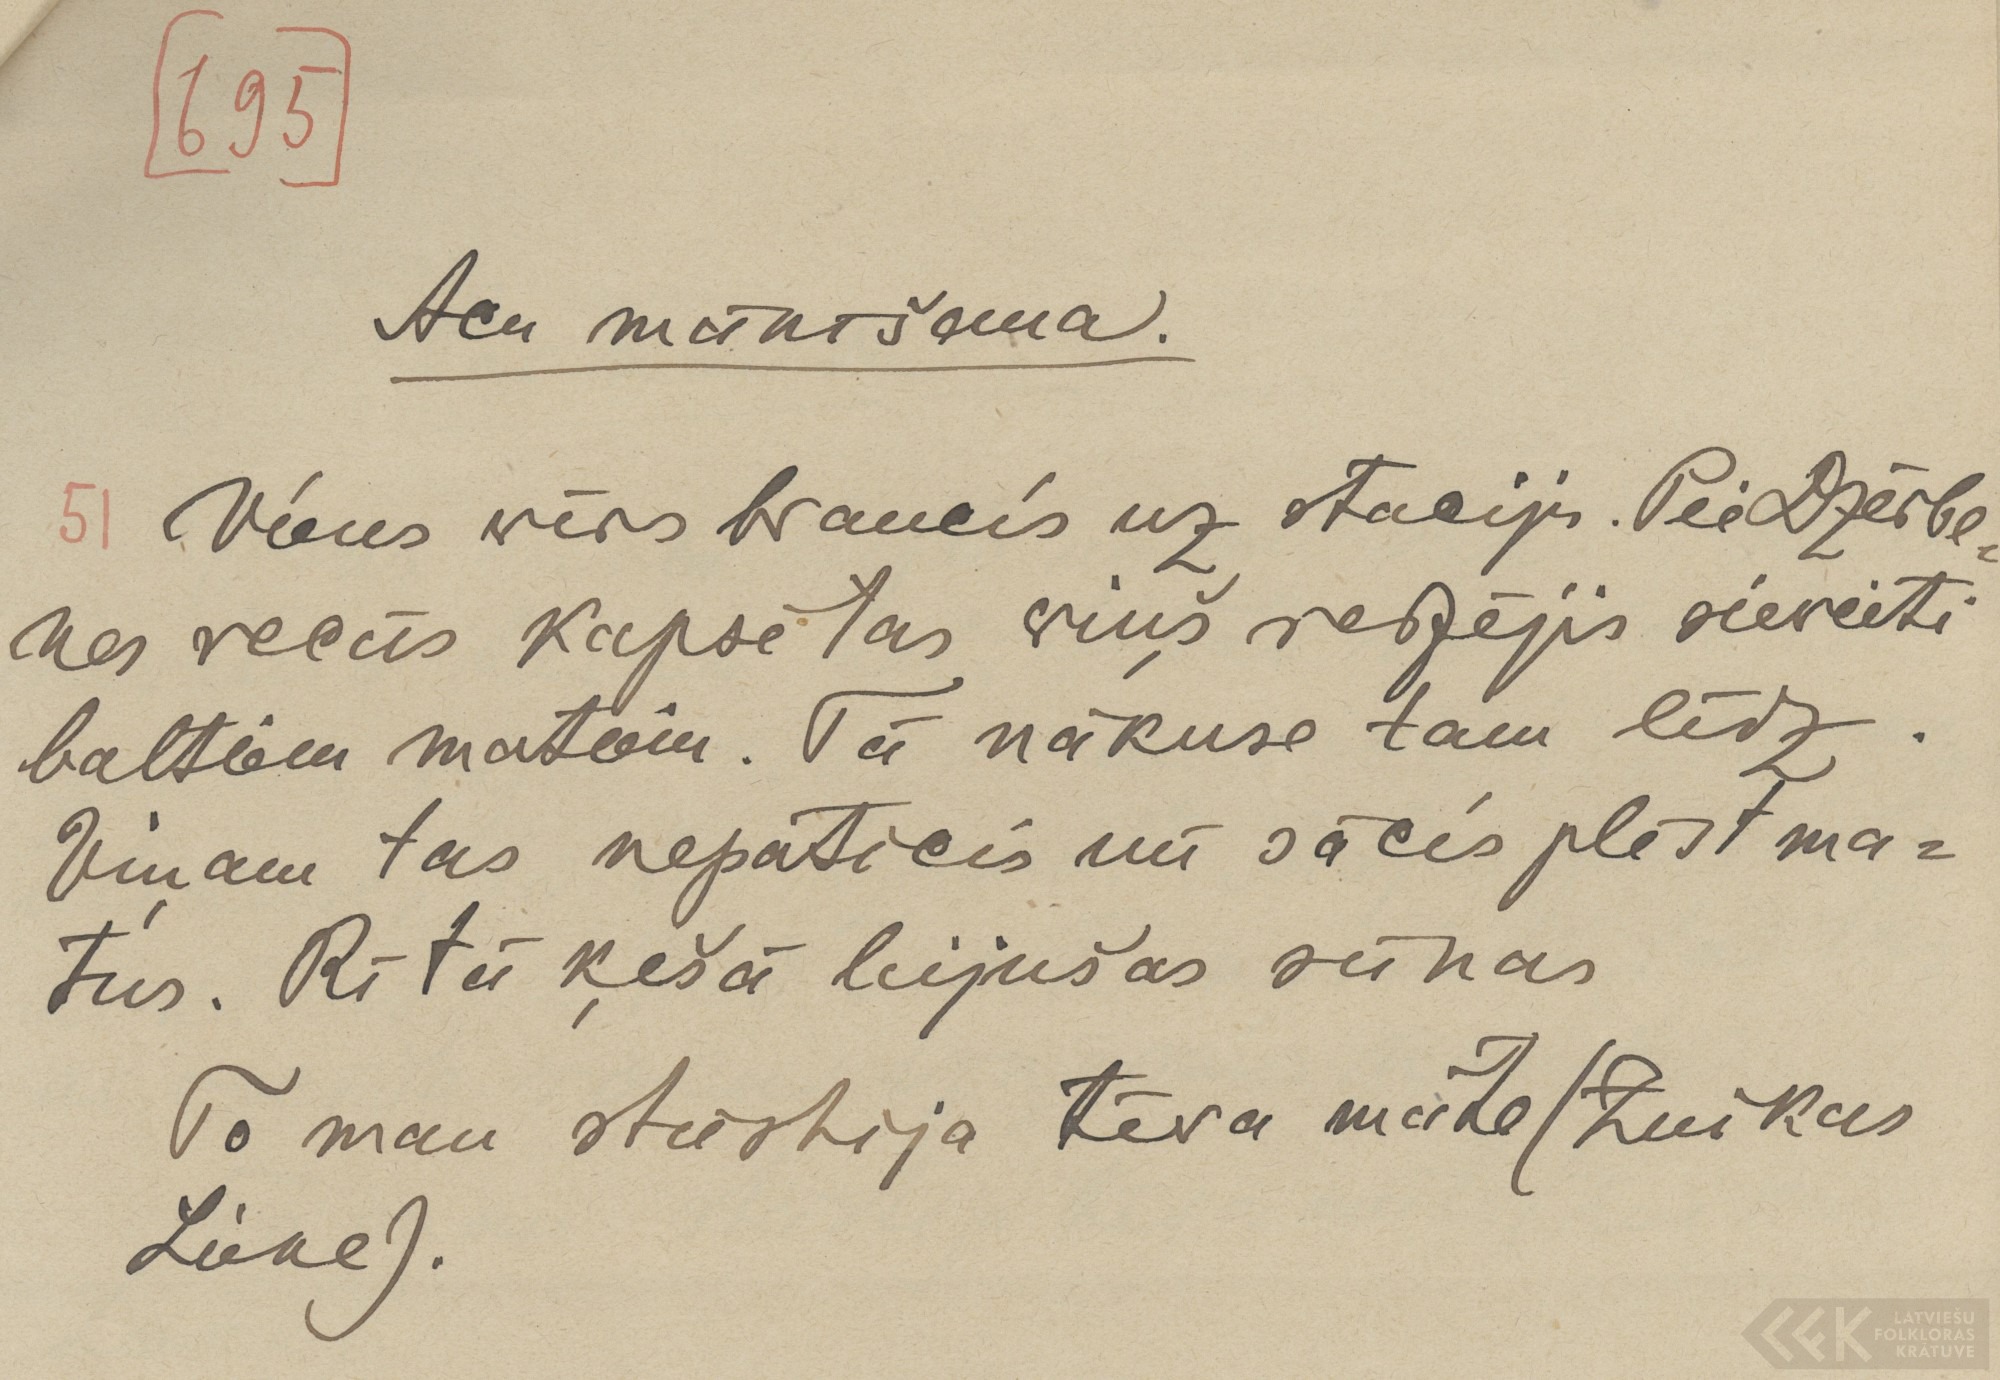 [695]
Acu mānišana.
51 Viens vīrs braucis uz staciju. Pei Dzērbe=
nes vecās kapsētas viņš redzējis sieveiti
baltiem matiem. Tā nākuse tam līdz.
Viņam tas nepaticis un sācis plēst ma=
tus. Rītā ķešā bijušas sūnas
To man stāstija tēva māte (Zuikas
Liene).
LATVIEŠU
FOLKLORAS
KRĀTUVE